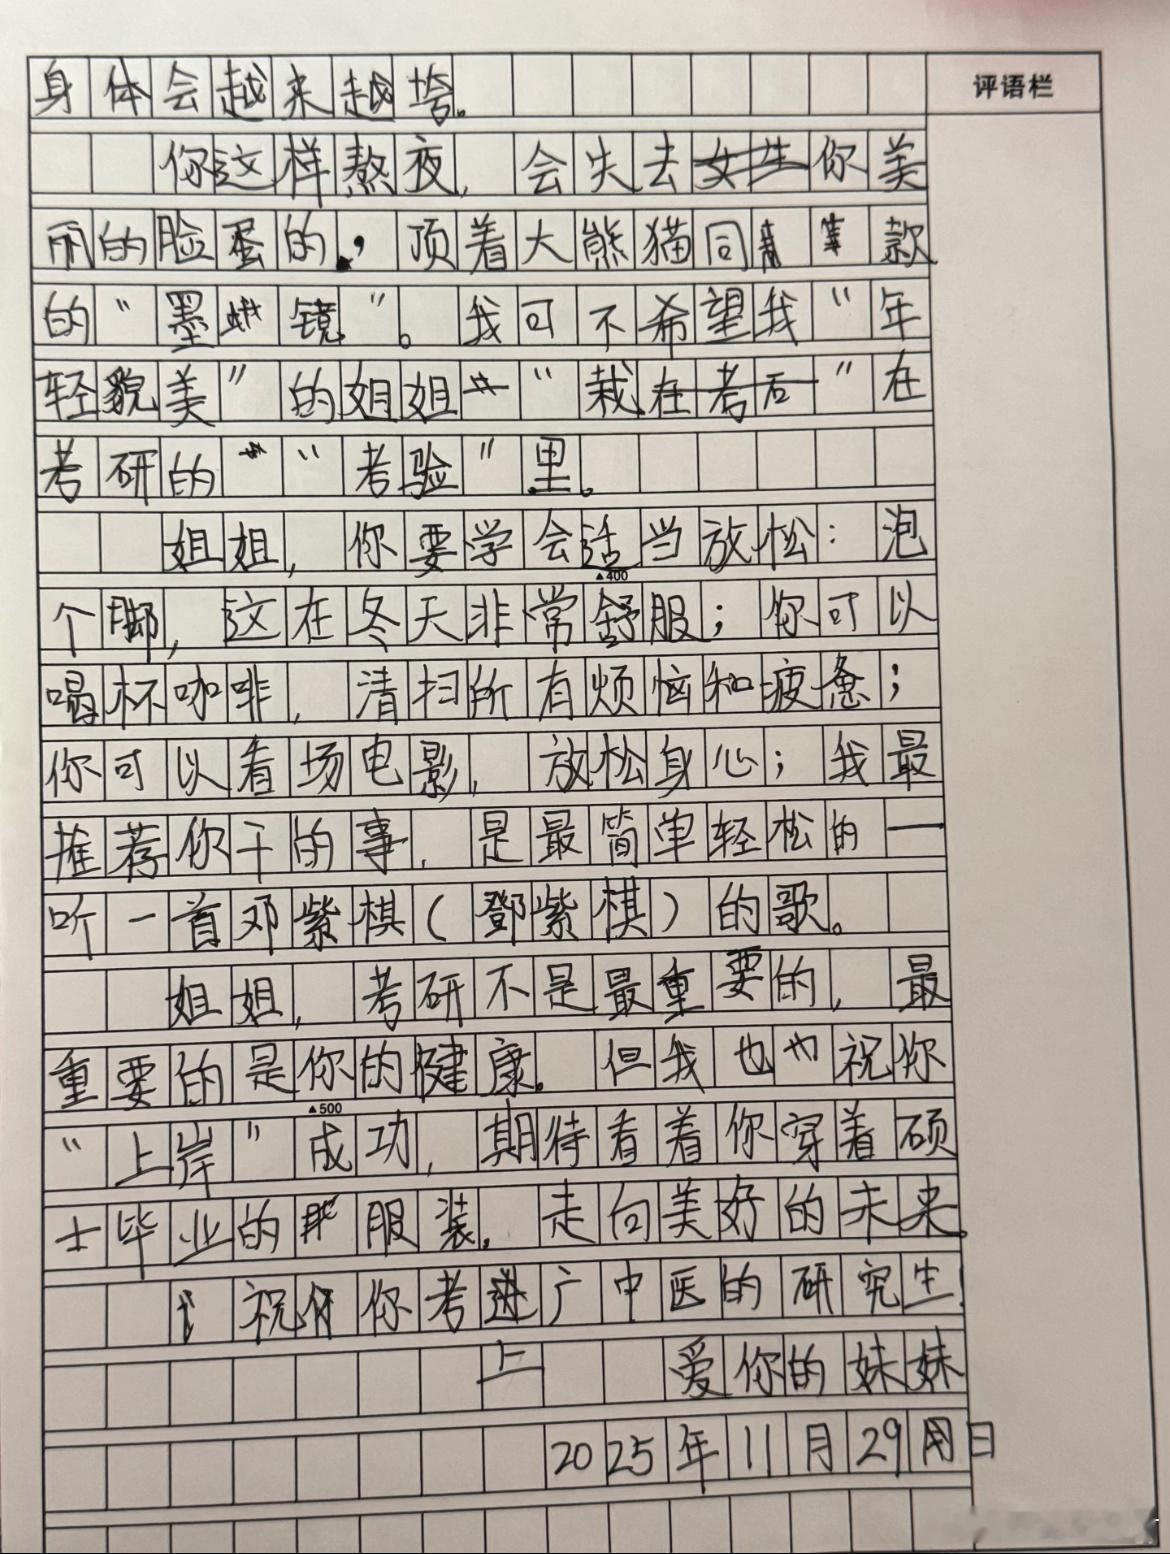 评语栏
身体会越来越垮。
你这样熬夜，会失去女生你美
丽的脸蛋的，顶着大熊猫同款
的“墨镜”。我可不希望我“年
轻貌美”的姐姐“栽在考后”在
考研的“考验”里。
姐姐，你要学会适当放松：泡
▲400
个脚，这在冬天非常舒服；你可以
喝杯咖啡，清扫所有烦恼和疲惫；
你可以看场电影，放松身心；我最
推荐你干的事，是最简单轻松的一
听一首邓紫棋（鄧紫棋）的歌。
姐姐，考研不是最重要的，最
重要的是你的健康。但我也也祝你
▲500
“上岸”成功，期待看着你穿着硕
士毕业的服装，走向美好的未来。
祝你考进广中医的研究生！
上
爱你的妹妹
2025年11月29日